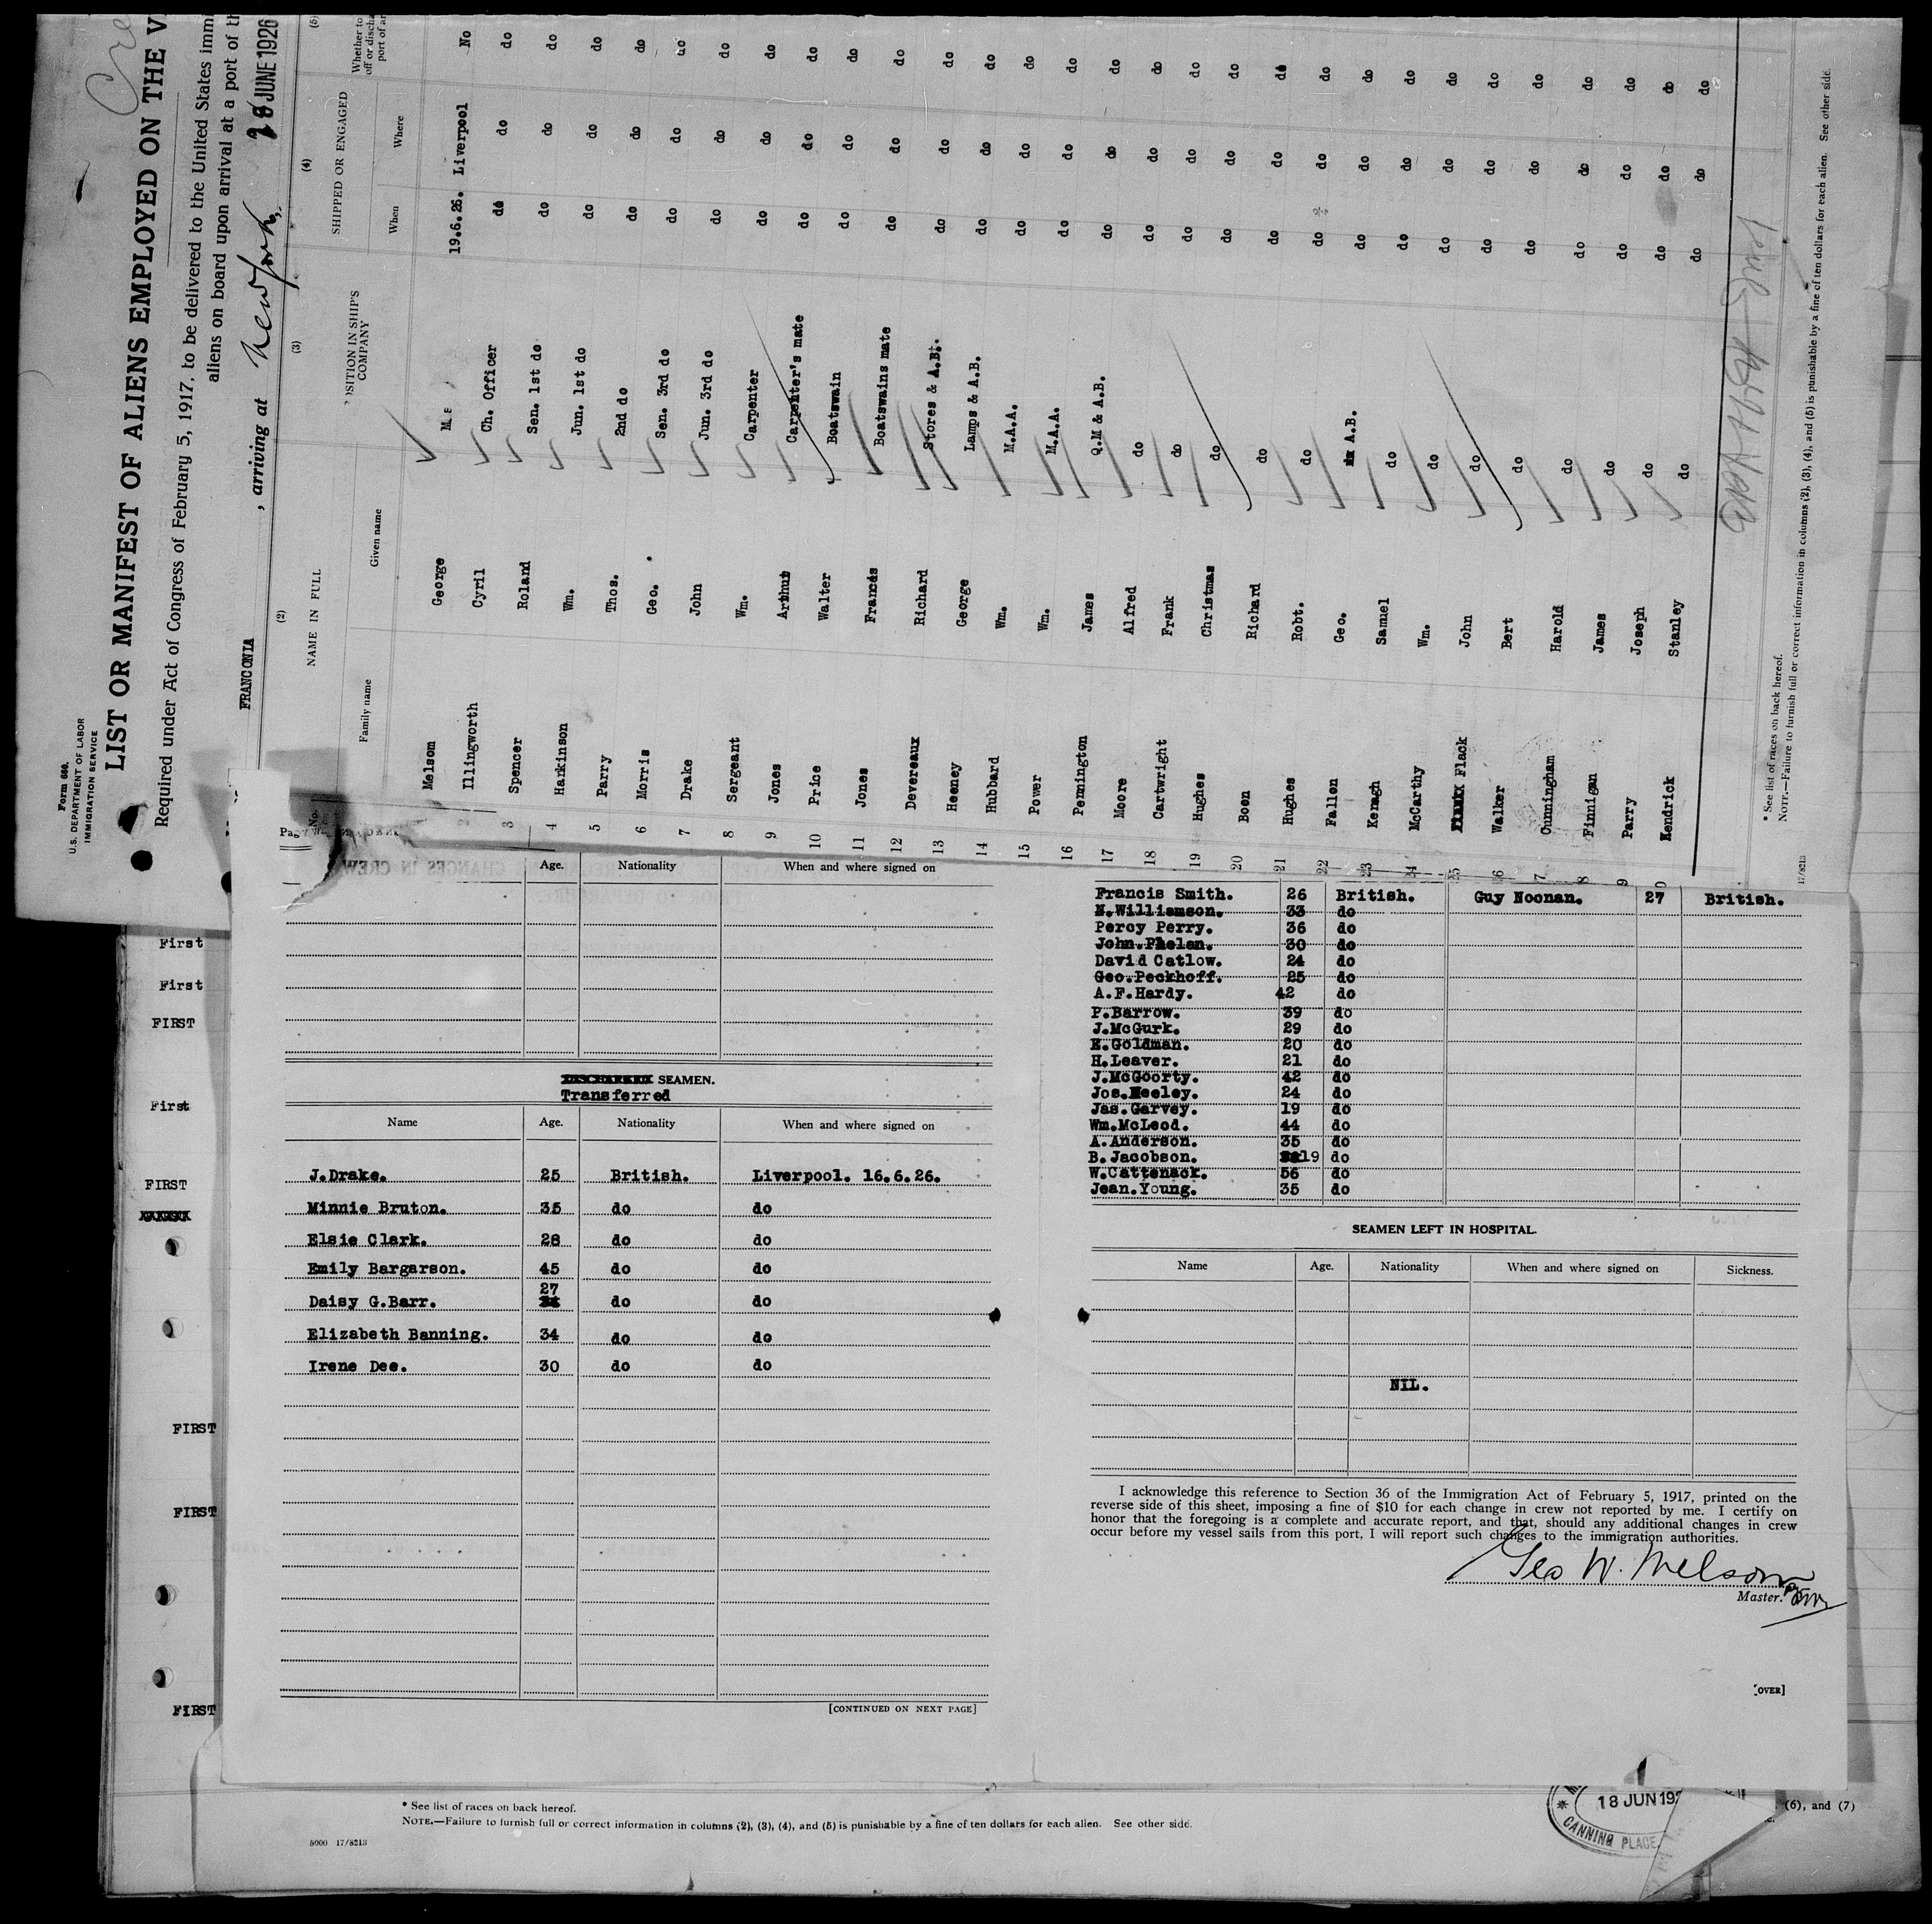 Form 680.
U.S. DEPARTMENT OF LABOR
IMMIGRATION SERVICE
LIST OR MANIFEST OF ALIENS EMPLOYED ON THE V
Required under Act of Congress of February 5, 1917, to be delivered to the United States immi
aliens on board upon arrival at a port of th
FRANCONIA , arriving at New York, 28 JUNE 1926
(2) (3) (4) (5)
NAME IN FULL SHIPPED OR ENGAGED
OSITION IN SHIP'S COMPANY
Whether to
Family name Given name When Where
Melsom George 19.6.26. Liverpool No
Illingworth Cyril Ch. Officer do do do
3 Spencer Roland Sen. 1st do do do do
4 Harkinson Wm. Jun. 1st do do do do
5 Parry Thos. 2nd do do do do
6 Morris Geo. Sen. 3rd do do do do
7 Drake John Jun. 3rd do do do do
8 Sergeant Wm. Carpenter do do do
9 Jones Arthur Carpenter's mate do do do
10 Price Walter Boatswain do do do
11 Jones Francis Boatswains mate do do do
12 Devereaux Richard Stores & A.B. do do do
13 Heeney George Lamps & A.B. do do do
14 Hubbard Wm. M.A.A. do do do
15 Power Wm. M.A.A. do do do
16 Pennington James Q.M & A.B. do do do
17 Moore Alfred do do do do
18 Cartwright Frank do do do do
19 Hughes Christmas do do do do
20 Boen Richard do do do do
21 Hughes Robt. do do do do
22 Fallon Geo. A.B. do do do
23 Keragh Samuel do do do do
24 McCarthy Wm. do do do do
25 Flack John do do do do
26 Walker Bert do do do do
7 Cunningham Harold do do do do
8 Finnigan James do do do do
9 Parry Joseph do do do do
0 Kendrick Stanley do do do do
* See list of races on back hereof.
NOTE.—Failure to furnish full or correct information in columns (2), (3), (4), and (5) is punishable by a fine of ten dollars for each alien. See other side.
17/8213
First
First
FIRST
First
FIRST
FIRST
FIRST
FIRST
Age. Nationality When and where signed on
SEAMEN.
Transferred
Name Age. Nationality When and where signed on
J.Drake. 25 British. Liverpool. 16.6.26.
Minnie Bruton. 35 do do
Elsie Clark. 28 do do
Emily Bargarson. 45 do do
Daisy G.Barr. 27 do do
Elizabeth Banning. 34 do do
Irene Dee. 30 do do
[CONTINUED ON NEXT PAGE]
Francis Smith. 26 British. Guy Noonan. 27 British.
N.Williamson. 33 do
Percy Perry. 36 do
John.Phelan. 30 do
David Catlow. 24 do
Geo.Peckhoff. 25 do
A.F.Hardy. 42 do
P.Barrow. 39 do
J.McGurk. 29 do
E.Goldman. 20 do
H.Leaver. 21 do
J.McGoorty. 42 do
Jos.Neeley. 24 do
Jas.Garvey. 19 do
Wm.McLeod. 44 do
A.Anderson. 35 do
B.Jacobson. 19 do
W.Cattenack. 56 do
Jean.Young. 35 do
SEAMEN LEFT IN HOSPITAL.
Name Age. Nationality When and where signed on Sickness.
NIL.
I acknowledge this reference to Section 36 of the Immigration Act of February 5, 1917, printed on the
reverse side of this sheet, imposing a fine of $10 for each change in crew not reported by me. I certify on
honor that the foregoing is a complete and accurate report, and that, should any additional changes in crew
occur before my vessel sails from this port, I will report such changes to the immigration authorities.
Geo W. Melsom
Master.
[OVER]
* See list of races on back hereof.
NOTE.—Failure to furnish full or correct information in columns (2), (3), (4), and (5) is punishable by a fine of ten dollars for each alien. See other side.
5000 17/8213
18 JUN 192
CANNING PLACE
(6), and (7)